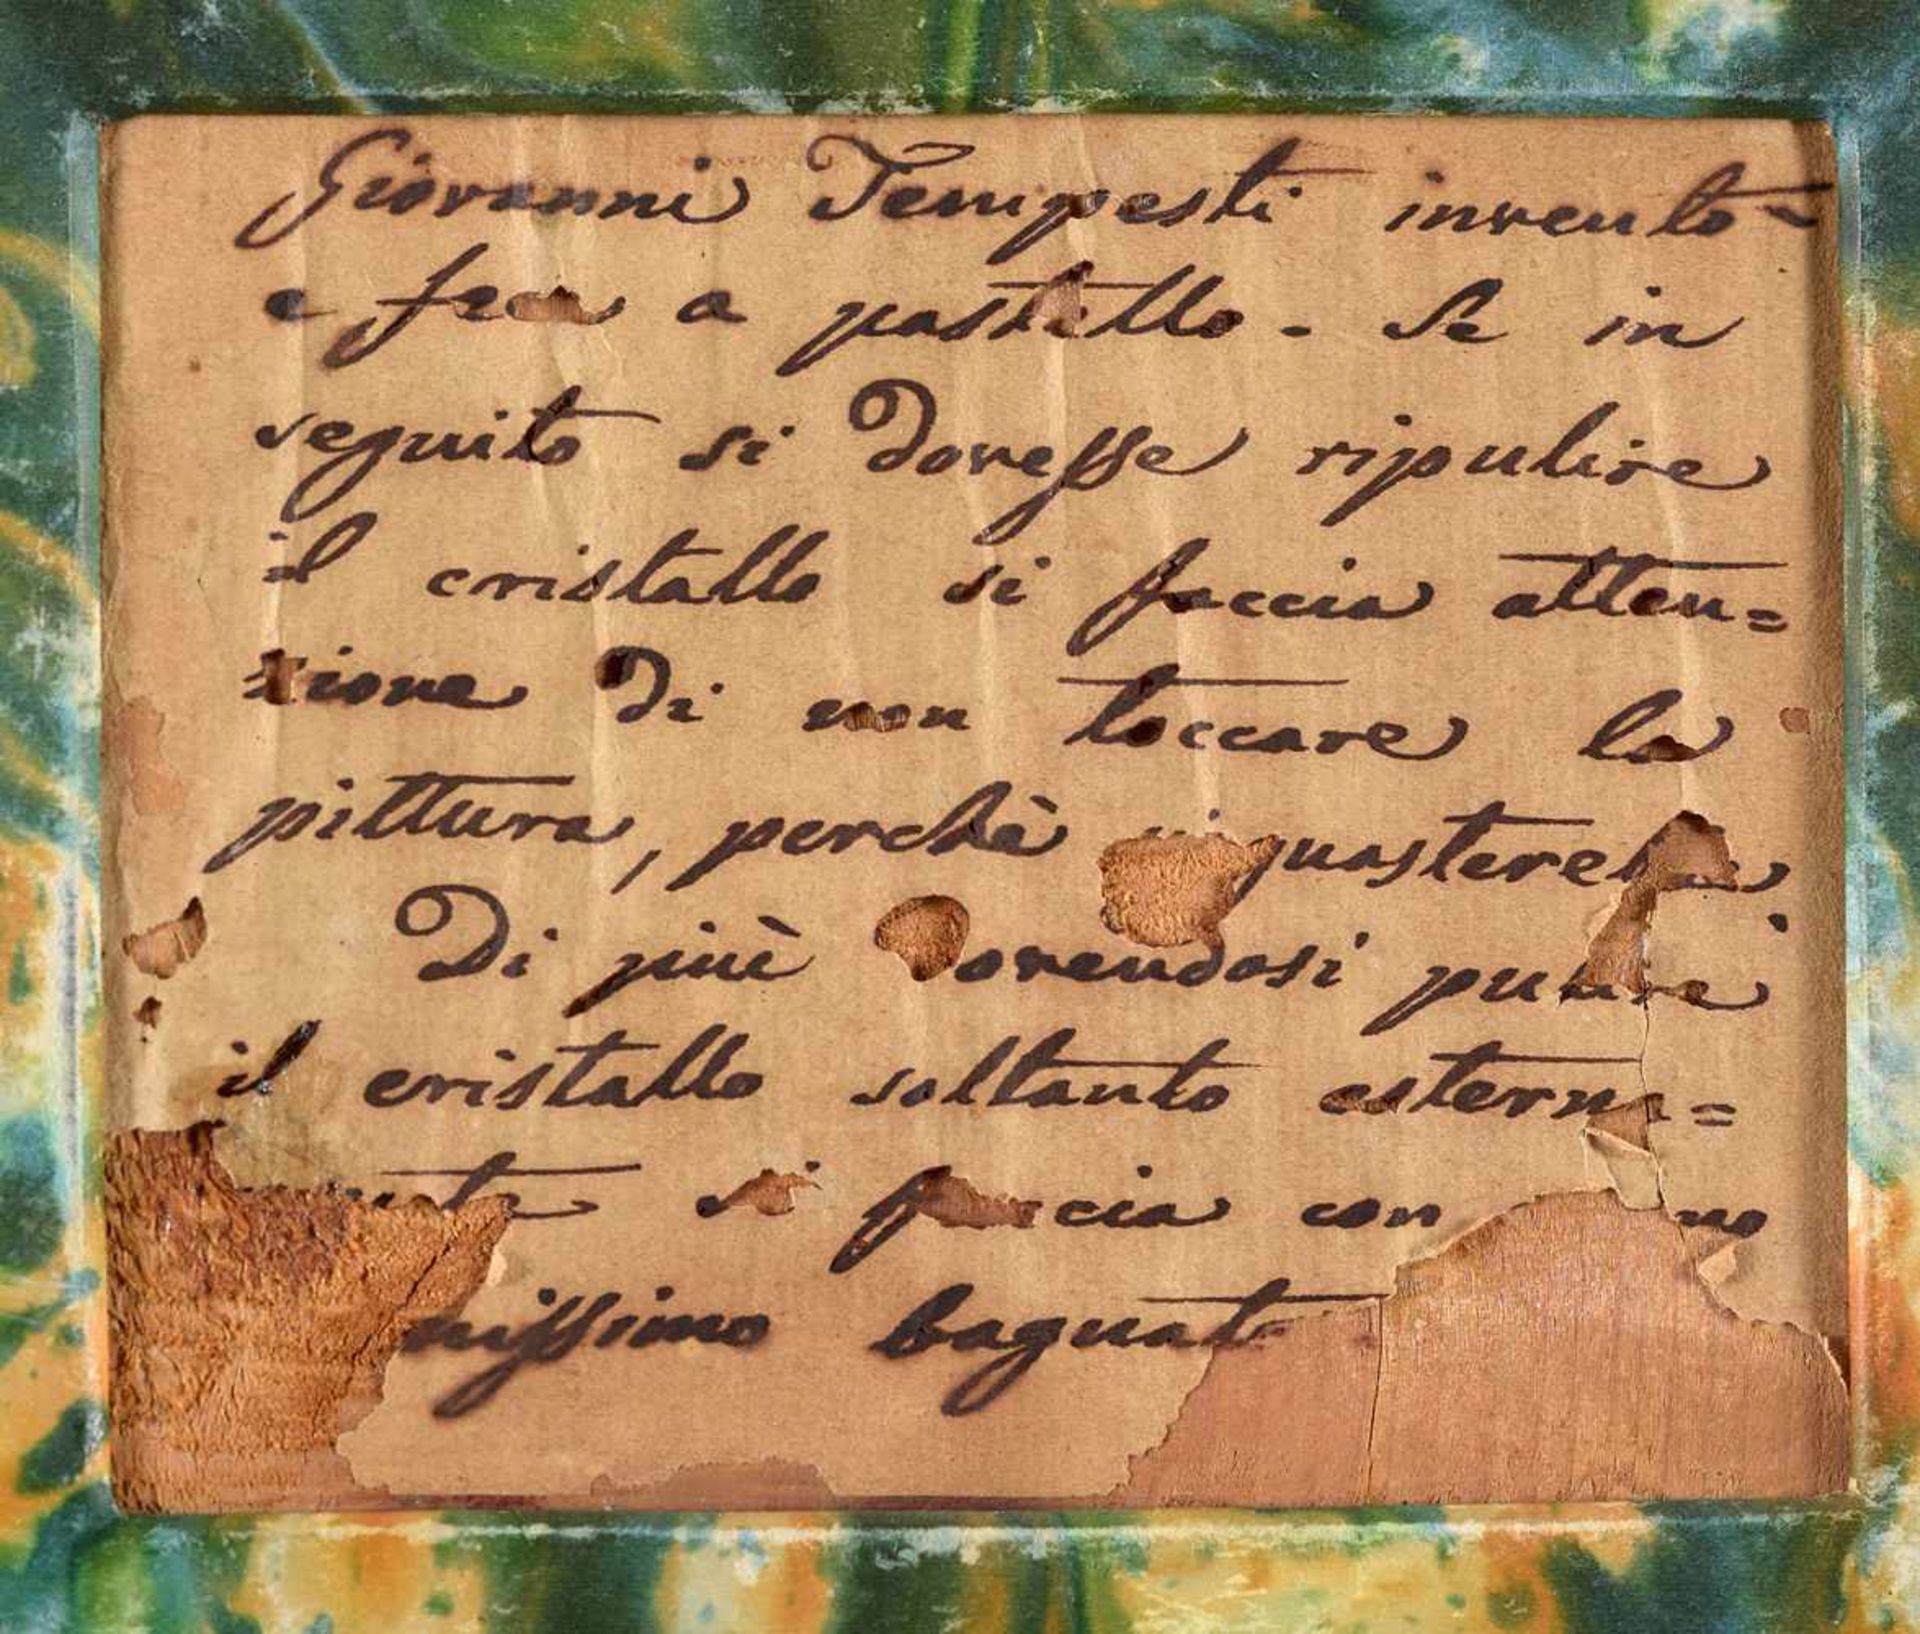 Giovanni Tempesti inventò
e fece a pastello. Se in
seguito si dovesse ripulire
il cristallo si faccia atten=
zione di non toccare la
pittura, perchè si guasterebbe.
Di più dovendosi pulire
il cristallo soltanto esterna=
mente si faccia con
bagnato